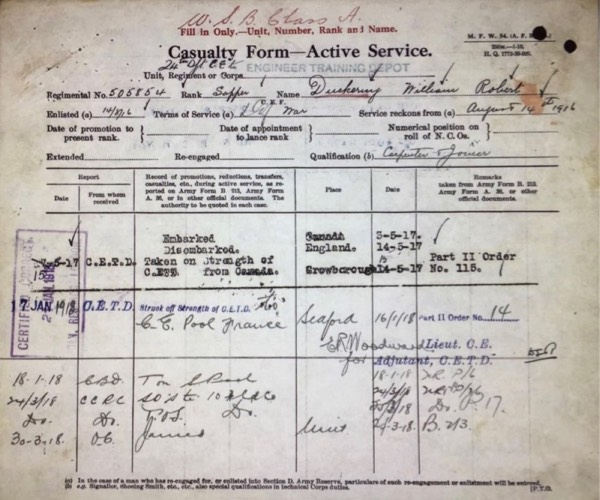 W.S.B. Class A.
Fill in Only.—Unit, Number, Rank and Name.
M. F. W. 54. (A. F.
H. Q. 1772-39-920.
Casualty Form—Active Service.
Unit, Regiment or Corps ENGINEER TRAINING DEPOT
Regimental No. 505854 Rank Sapper Name Duckering William Robert
C.E.F.
Enlisted (a) Terms of Service (a) War Service reckons from (a) August 14th 1916
Date of promotion to present rank. } Date of appointment to lance rank } Numerical position on roll of N. C. Os. }
Extended Re-engaged Qualification (b) Carpenter & Joiner
Report
Date
From whom received
Record of promotions, reductions, transfers, casualties, etc., during active service, as reported on Army Form B. 213, Army Form A. 36, or in other official documents. The authority to be quoted in each case.
Place
Date
Remarks
taken from Army Form B. 213, Army Form A. 36, or other official documents.
Embarked Canada 3-5-17.
Disembarked. England. 14-5-17
5-17 C.E.T.D. Taken on Strength of C.E.T.D. from Canada. Crowborough 14-5-17 Part II Order No. 115.
17 JAN 1918 C.E.T.D. Struck off Strength of C.E.T.D. to
C.E. Pool France Seaford 16/1/18 Part II Order No. 14
E R Woodward Lieut. C.E.
for Adjutant, C.E.T.D.
18-1-18 Pool 18-1-18
24/3/18 C.C.R.C. SOS to 10
Do. Do. Do. Do.
30-3-18. O.C. Joined Unit 3-18 B. 213.
(a) In the case of a man who has re-engaged for, or enlisted into Section D. Army Reserve, particulars of such re-engagement or enlistment will be entered.
(b) e.g. Signaller, Shoeing Smith, etc., etc., also special qualifications in technical Corps duties. [P.T.O.